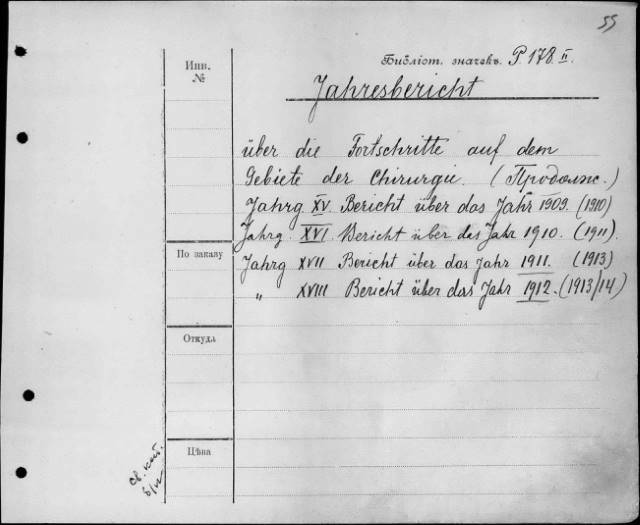 55
Инв. №
Библіот. значекъ. P. 178 II.
Jahresbericht
über die Fortschritte auf dem
Gebiete der Chirurgie. (Продолж.)
Jahrg. XV. Bericht über das Jahr 1909. (1910)
Jahrg. XVI. Bericht über das Jahr 1910. (1911).
По заказу
Jahrg XVII Bericht über das Jahr 1911. (1913)
„ XVIII Bericht über das Jahr 1912. (1913/14)
Откудь
Цѣна
св. кат.